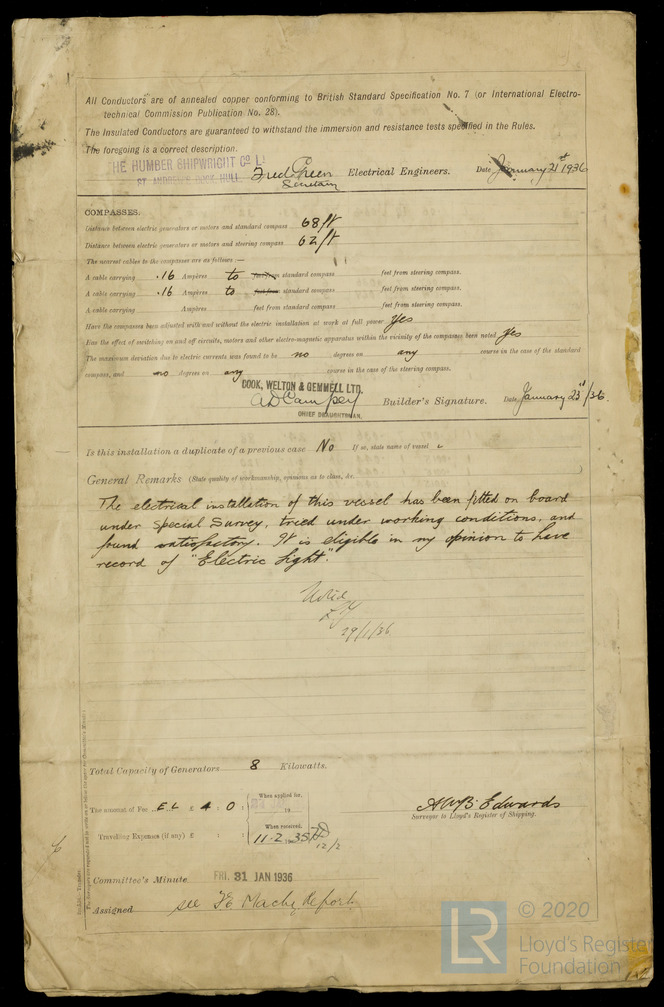 All Conductors are of annealed copper conforming to British Standard Specification No. 7 (or International Electro-
technical Commission Publication No. 28).
The Insulated Conductors are guaranteed to withstand the immersion and resistance tests specified in the Rules.
The foregoing is a correct description.
THE HUMBER SHIPWRIGHT CO LD
ST. ANDREW'S DOCK, HULL.
Fred Green Electrical Engineers. Date January 21st 1936
Secretary
COMPASSES.
Distance between electric generators or motors and standard compass 68 ft
Distance between electric generators or motors and steering compass 62 ft
The nearest cables to the compasses are as follows:—
A cable carrying .16 Ampères to feet from standard compass feet from steering compass.
A cable carrying .16 Ampères to feet from standard compass feet from steering compass.
A cable carrying Ampères feet from standard compass feet from steering compass.
Have the compasses been adjusted with and without the electric installation at work at full power Yes
Has the effect of switching on and off circuits, motors and other electro-magnetic apparatus within the vicinity of the compasses been noted Yes
The maximum deviation due to electric currents was found to be no degrees on any course in the case of the standard
compass, and no degrees on any course in the case of the steering compass.
COOK, WELTON & GEMMELL LTD.
A D Campey Builder's Signature. Date January 23rd/36.
CHIEF DRAUGHTSMAN.
Is this installation a duplicate of a previous case No If so, state name of vessel
General Remarks (State quality of workmanship, opinions as to class, &c.)
The electrical installation of this vessel has been fitted on board
under special survey, tried under working conditions, and
found satisfactory. It is eligible in my opinion to have
record of "Electric Light".
Noted
29/1/36
Total Capacity of Generators 8 Kilowatts.
When applied for,
The amount of Fee .. EL £ 4 : 0 : 19
AWB Edwards
Surveyor to Lloyd's Register of Shipping.
When received,
Travelling Expenses (if any) £ : : 11.2.1936
12/2
Committee's Minute FRI. 31 JAN 1936
Assigned see FE Machy Report
LR
© 2020
Lloyd's Register
Foundation